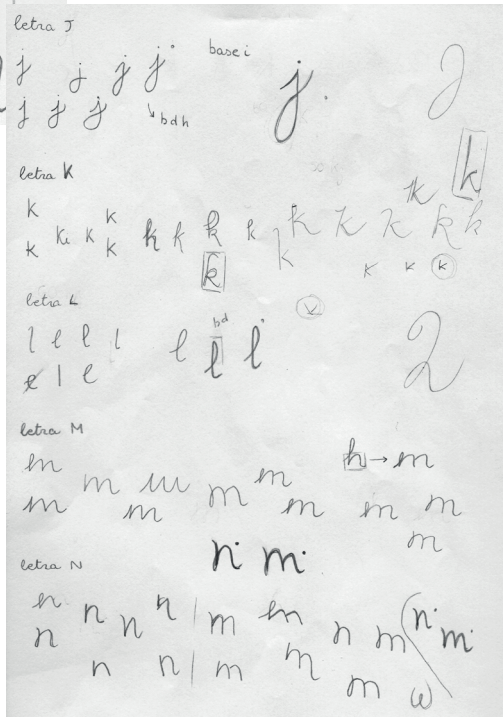 letra J
j j j j base i j J
j j j → b d h
letra K k
k k k k k k k k k k k k k k k
k k k k k k k
letra L
l e l l l bd l l 2
e l e
letra M h → m
m m m m m
m m m m m m
m
n m
letra N
n n n n m m n m n m
n n n m m m w